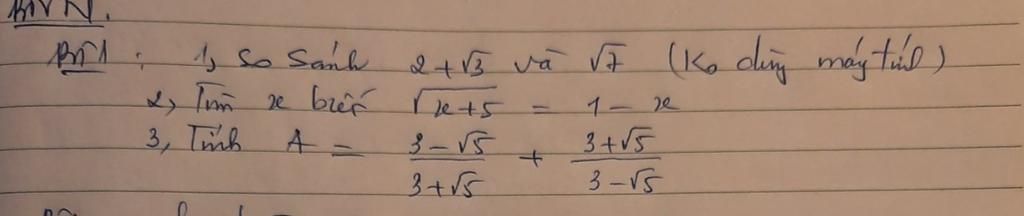 BTVN.
BT1: 1, So sánh 2 + √3 và √7 (Ko dùng máy tính)
2, Tìm x biết √(x+5) = 1 - x
3, Tính A = (3 - √5)/(3 + √5) + (3 + √5)/(3 - √5)